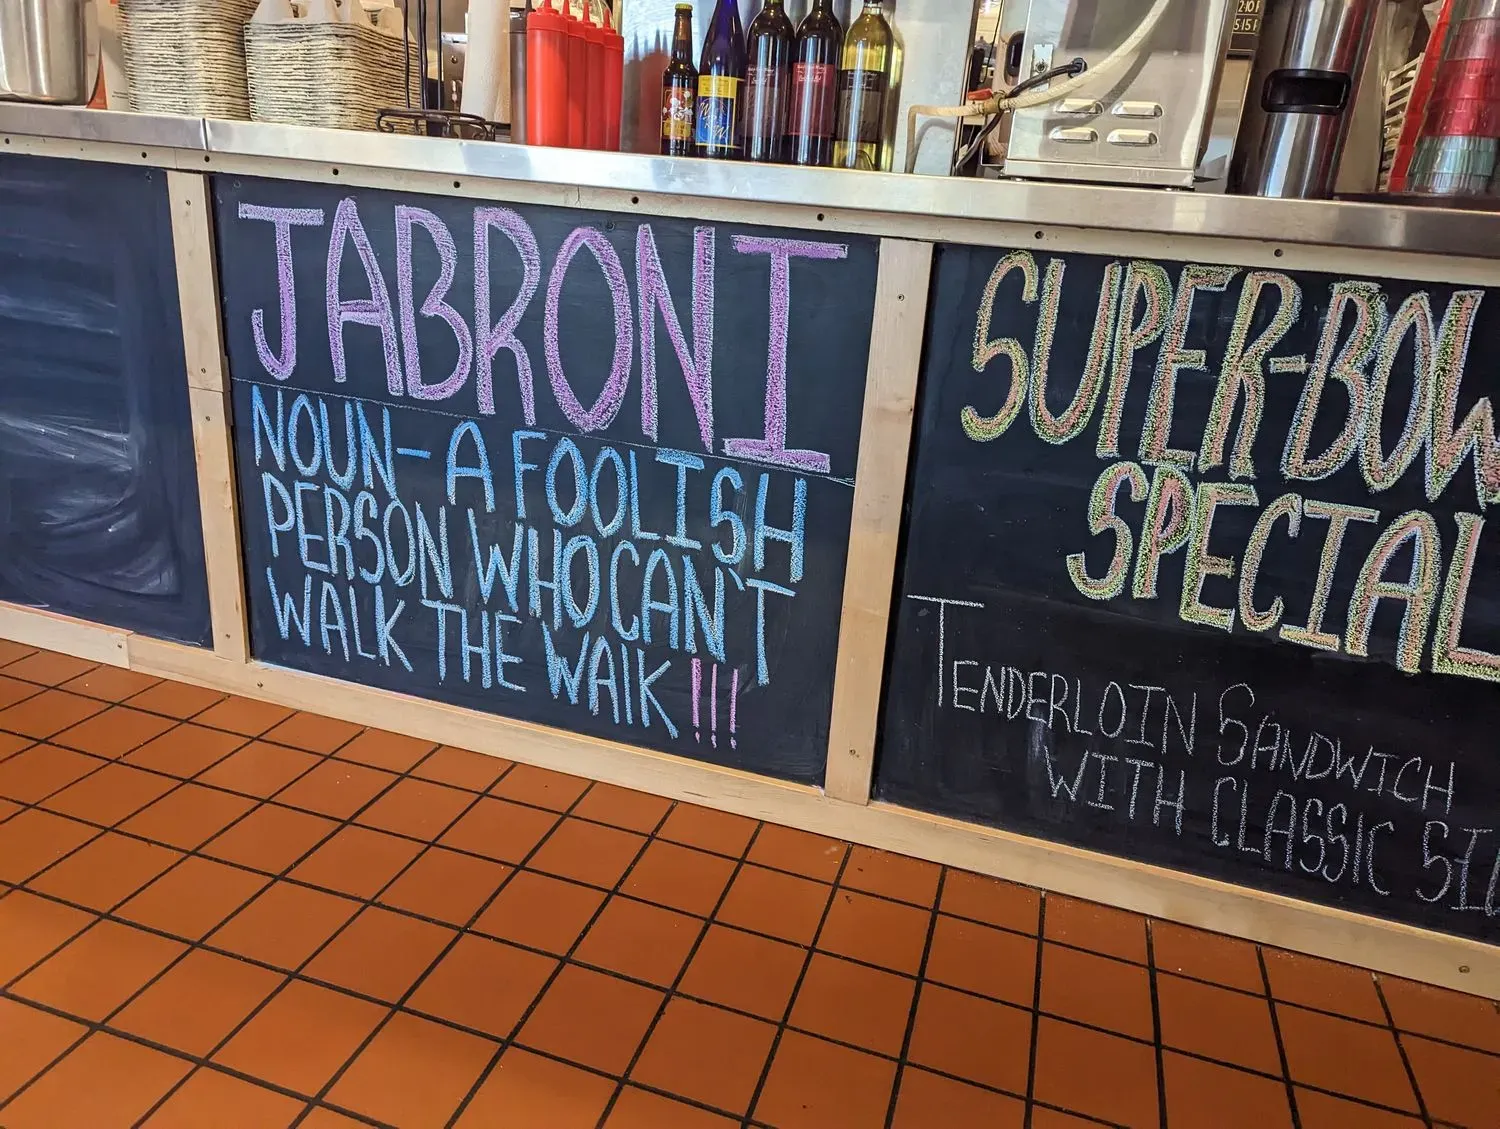 JABRONI
NOUN-A FOOLISH
PERSON WHO CAN'T
WALK THE WAIK !!!
SUPER-BOW
SPECIAL
TENDERLOIN SANDWICH
WITH CLASSIC